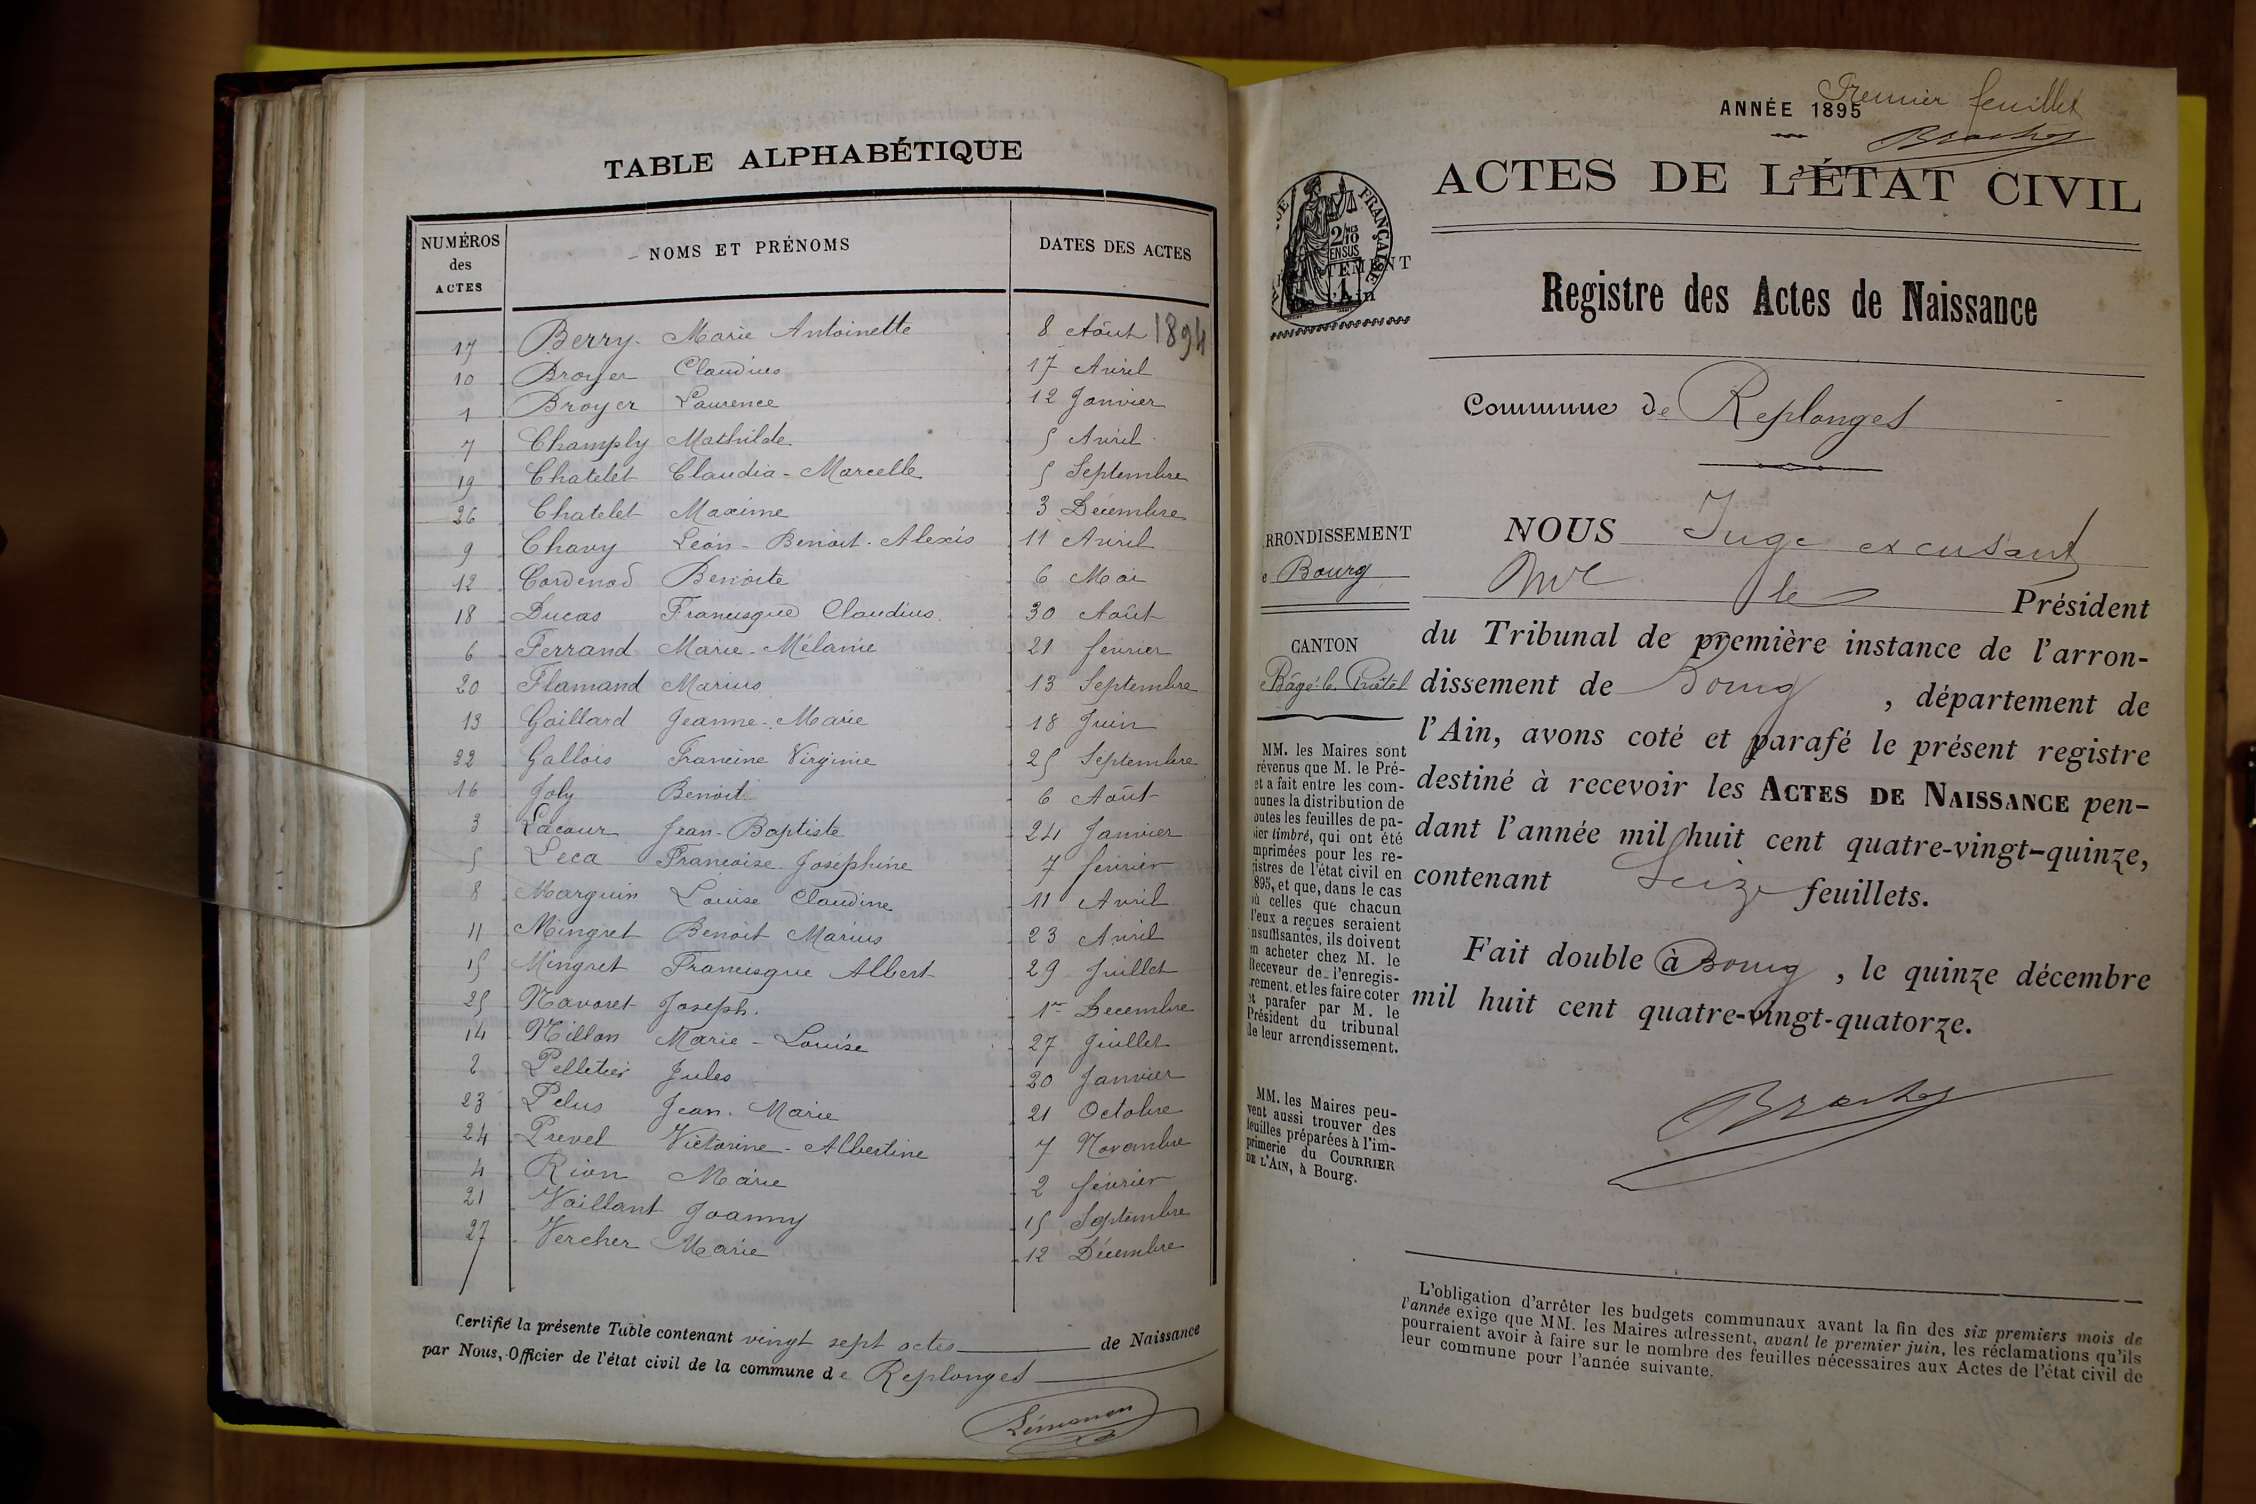 TABLE ALPHABÉTIQUE
NUMÉROS des ACTES NOMS ET PRÉNOMS DATES DES ACTES
17 Berry Marie Antoinette 8 Août 1894
10 Broyer Claudius 17 Avril
1 Broyer Laurence 12 Janvier
7 Champly Mathilde 5 Avril
19 Chatelet Claudia-Marcelle 5 Septembre
26 Chatelet Maxime 3 Décembre
9 Chavy Léon-Benoit-Alexis 11 Avril
12 Cordenod Benoite 6 Mai
18 Ducas Francisque Claudius 30 Août
6 Ferrand Marie-Mélanie 21 février
20 Flamand Marius 13 Septembre
13 Gaillard Jeanne-Marie 18 Juin
22 Gallois Francine Virginie 25 Septembre
16 Joly Benoit 6 Août
3 Lacour Jean-Baptiste 24 Janvier
5 Leca Francoise Joséphine 7 février
8 Marguin Louise Claudine 11 Avril
11 Mingret Benoit Marius 23 Avril
15 Mingret Francisque Albert 29 Juillet
25 Navoret Joseph. 1er Decembre
14 Nillon Marie-Louise 27 Juillet
2 Pelletier Jules 20 Janvier
23 Pelus Jean-Marie 21 Octobre
24 Prevel Victorine-Albertine 7 Novembre
4 Rion Marie 2 février
21 Vaillant Joanny 15 Septembre
27 Vercher Marie 12 Décembre
Certifié la présente Table contenant vingt sept actes de Naissance
par Nous, Officier de l'état civil de la commune de Replonges
Premier feuillet
ANNÉE 1895
ACTES DE L'ÉTAT CIVIL
FRANÇAISE
2/10
EN SUS
Registre des Actes de Naissance
Commune de Replonges
ARRONDISSEMENT
de Bourg
CANTON
de Bâgé-le-Châtel
MM. les Maires sont
prévenus que M. le Pré-
fet a fait entre les com-
munes la distribution de
toutes les feuilles de pa-
pier timbré, qui ont été
imprimées pour les re-
gistres de l'état civil en
1895, et que, dans le cas
où celles que chacun
d'eux a reçues seraient
insuffisantes, ils doivent
en acheter chez M. le
Receveur de l'enregis-
trement, et les faire coter
et parafer par M. le
Président du tribunal
de leur arrondissement.
MM. les Maires peu-
vent aussi trouver des
feuilles préparées à l'im-
primerie du COURRIER
DE L'AIN, à Bourg.
NOUS Juge excusant
Mr le Président
du Tribunal de première instance de l'arron-
dissement de Bourg, département de
l'Ain, avons coté et parafé le présent registre
destiné à recevoir les ACTES DE NAISSANCE pen-
dant l'année mil huit cent quatre-vingt-quinze,
contenant Seize feuillets.
Fait double à Bourg, le quinze décembre
mil huit cent quatre-vingt-quatorze.
L'obligation d'arrêter les budgets communaux avant la fin des six premiers mois de
l'année exige que MM. les Maires adressent, avant le premier juin, les réclamations qu'ils
pourraient avoir à faire sur le nombre des feuilles nécessaires aux Actes de l'état civil de
leur commune pour l'année suivante.